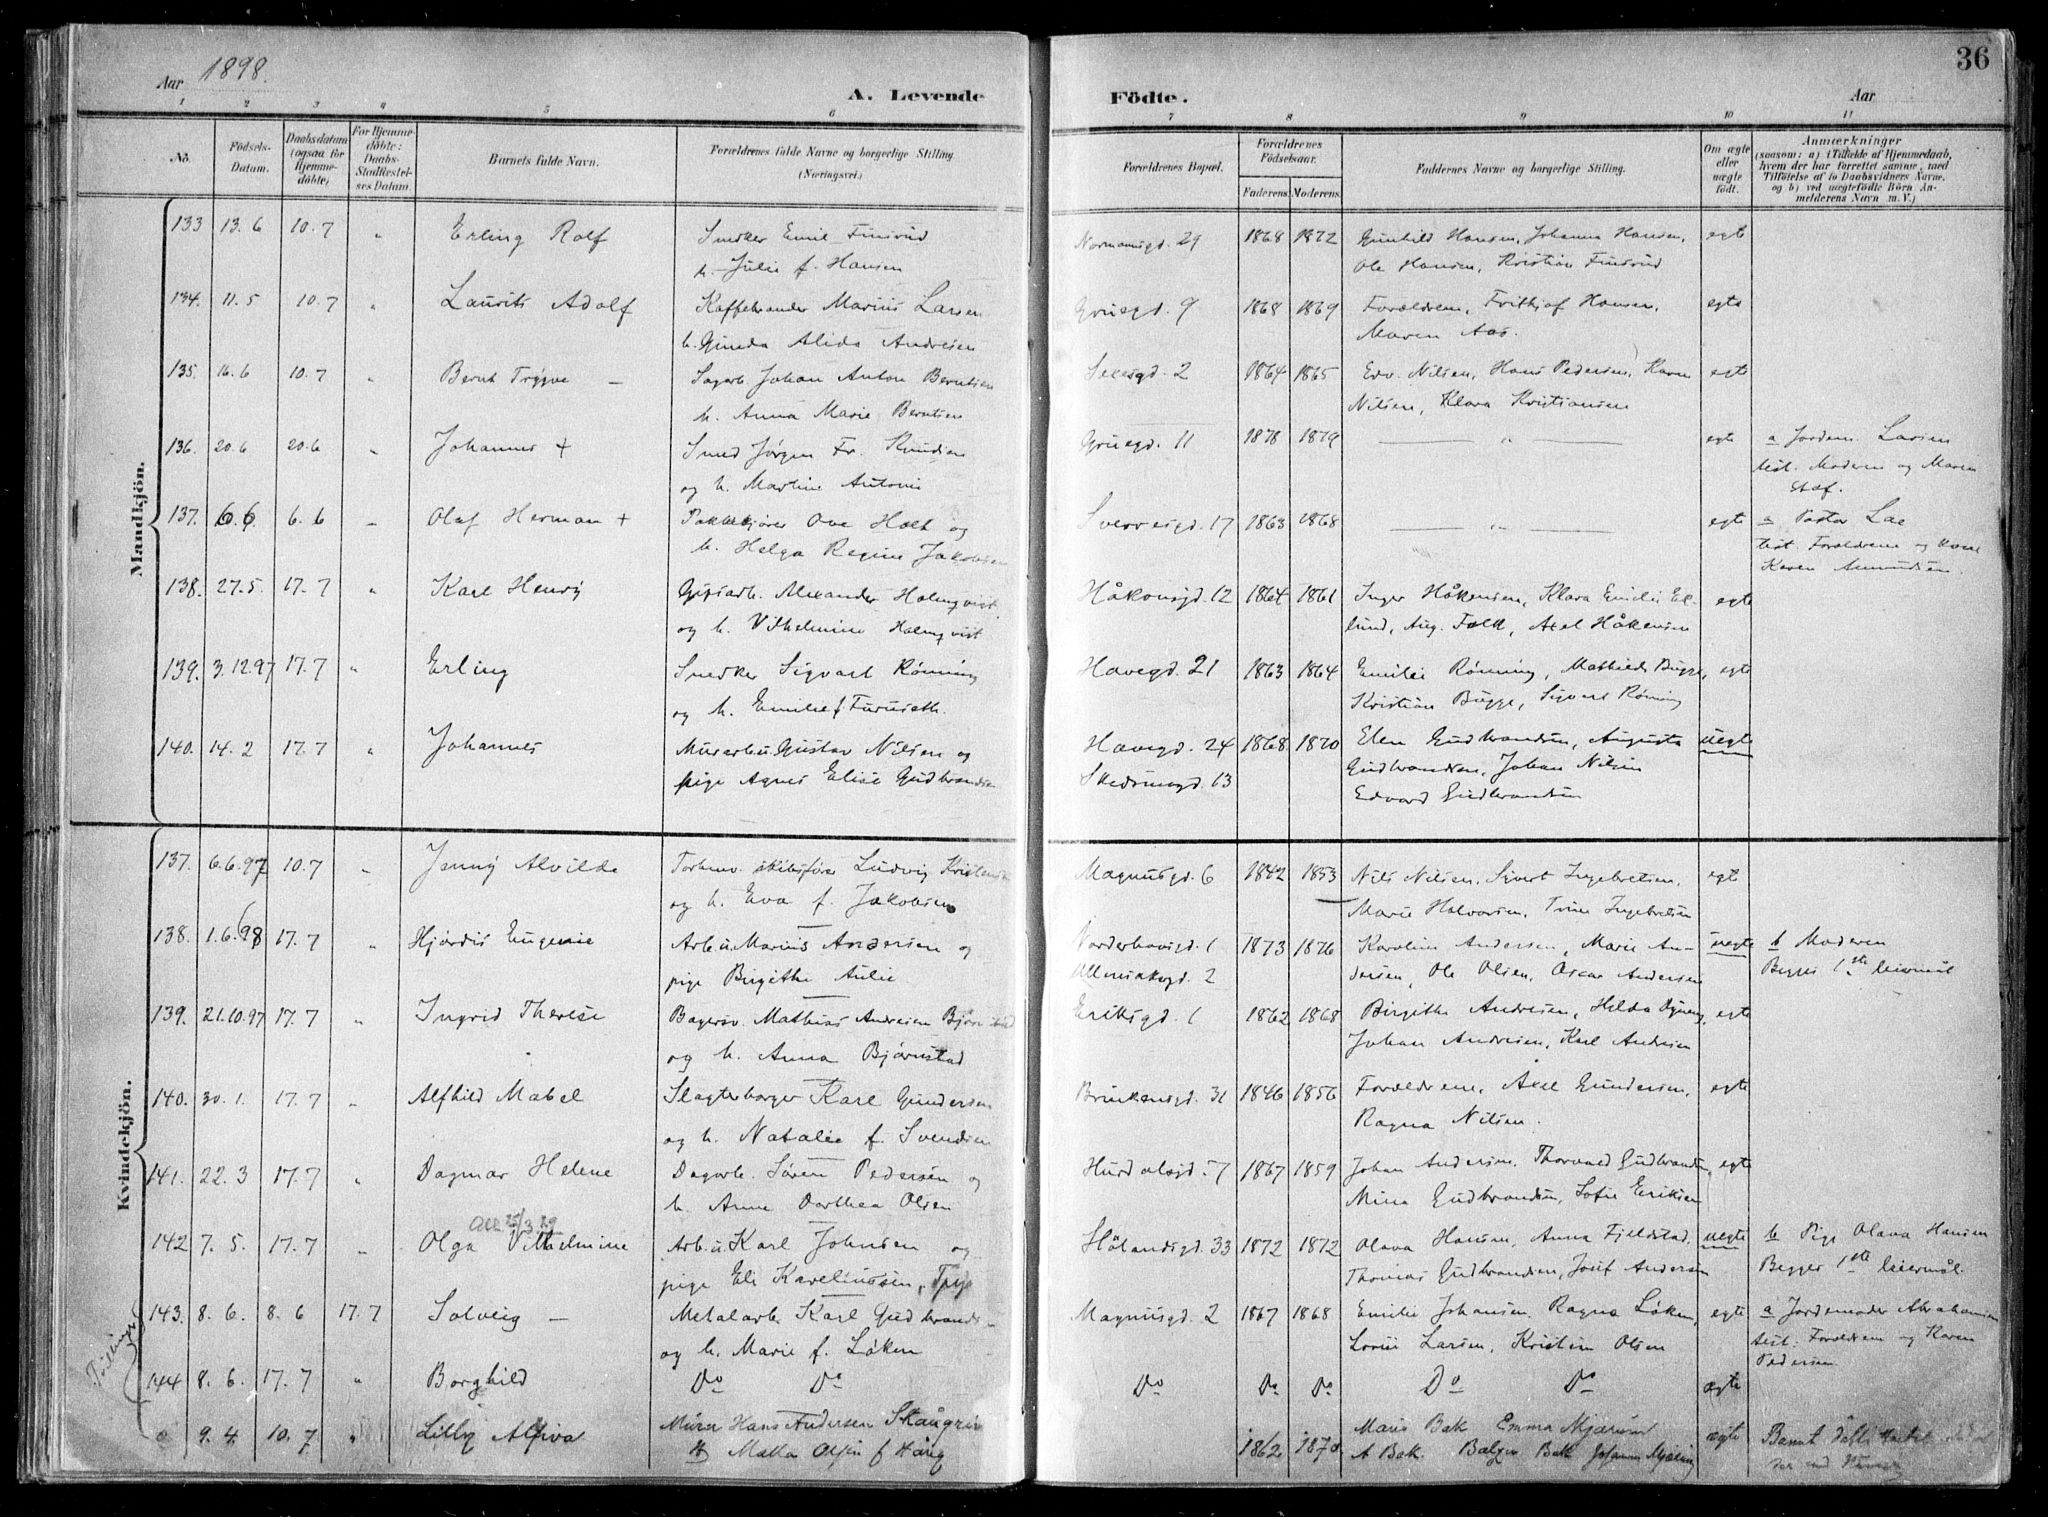 Aar 1898.
A. Levende Födte.
Aar
36
1 2 3 4 5 6 7 8 9 10 11
No. Födsels-Datum. Daabsdatum (ogsaa for Hjemme-døbte) For Hjemme-døbte: Daabs-Stadfæstel-ses Datum. Barnets fulde Navn. Forældrenes fulde Navne og borgerlige Stilling (Næringsvei.) Forældrenes Bopæl. Forældrenes Födselsaar. Faderens Moderens Faddernes Navne og borgerlige Stilling. Om ægte eller uægte födt. Anmærkninger (saasom: a) i Tilfælde af Hjemmedaab, hvem der har forrettet samme, med Tilføielse af to Daabsvidners Navne, og b) ved uægtefödte Börn An-melderens Navn m. V.)
Mandkjön.
133 13.6 10.7 " Erling Rolf Snedker Emil Finsrud Normannsgd. 29 1868 1872 Gunhild Hansen, Johanna Hansen, egte
h. Julie f. Hansen Ole Hansen, Kristian Finsrud
134. 11.5 10.7 " Laurits Adolf Kaffebrander Marius Larsen Gruegd. 9 1868 1869 Forældrene, Frithjof Hansen, egte
h. Ginida Alida Andresen Maren Aas.
135. 16.6 10.7 " Bernt Trygve – Sagarb. Johan Anton Berntsen 2 1864 1865 Edv. Nilsen, Hans Pedersen, Karen egte
h. Anna Marie Berntsen Nilsen, Klara Kristiansen
136. 20.6 20.6 " Johannes + Smed Jørgen Fr. Knudsen Gruegd. 11 1878 1879 — " — egte a Jordem. Larsen
og h. Martine Antonie test. Moderen og Maren
Staf.
137. 6.6 6.6 – Olaf Herman + Ove Holt og Sverresgd. 17 1863 1868 — " — egte a Pastor
h. Helga Regine Jakobsen test. Forældrene og
Karen Amundsen.
138. 27.5 17.7 " Karl Henry Gipsarb. Alexander Holmqvist Håkonsgd. 12 1864 1861 Inger Håkensen, Klara Emilie Ek- egte
og h. Vilhelmine Holmqvist lund, Aug. Falk, Axel Håkensen
139. 3.12.97 17.7 " Erling Snedker Sigvart Rønning Havegd. 21 1863 1864 Emilie Rønning, Mathilde Bugge, egte
og h. Emilie f. Furuseth. Kristian Bugge, Sigvart Rønning
140. 14.2 17.7 " Johannes Murarb. u. Gustav Nilsen og Havegd. 24 1868 1870 Elen Gudbrandsen, Augusta uegte
pige Agnes Elise Gudbrandsen Skedsmogd. 13 Gudbrandsen, Johan Nilsen
Edvard Gudbrandsen
Kvindekjön.
137. 6.6.97 10.7 " Jenny Alvilde skibsfører Ludvig Kristensen Magnusgd. 6 1842 1853 Nils Nilsen, Sivert Ingebretsen, egte
og h. Eva f. Jakobsen Marie Halvorsen, Trine Ingebretsen
138. 1.6.98 17.7 " Hjørdis Eugenie Arb. u. Marius Andersen og Norderhovsgd. 1 1873 1876 Karoline Andersen, Marie An- uegte b Moderen
pige Birgithe Aulie Ullensakergd. 2 dersen, Ole Olsen, Oscar Andersen Begges 1ste leiermål
139. 21.10.97 17.7 " Ingrid Therese Bagersv. Mathias Andresen Bjørnstad Eriksgd. 1 1862 1868 Birgithe Andresen, Helda egte
og h. Anna Bjørnstad Johan Andresen, Karl Andresen
140. 30.1. 17.7 " Alfhild Mabel Slagterborger Karl Gundersen Brinkensgd. 31 1846 1856 Forældrene, Axel Gundersen, egte
og h. Natalie f. Svendsen Ragna Nilsen.
141. 22.3 17.7 " Dagmar Helene Dagarb. Søren Pedersen og Hurdalsgd. 7 1867 1859 Johan Andersen, Thorvald Gudbrandsen egte
h. Anne Dorthea Olsen Mina Gudbrandsen, Sofie Eriksen
25/3 29
142 7.5. 17.7 " Olga Vilhelmine Arb. u. Karl Johnsen og Hölandsgd. 33 1872 1872 Olava Hansen, Anna Fjeldstad. uegte b Pige Olava Hansen
pige Eli Karelinssen, Thomas Gudbrandsen, Josef Andersen Begges 1ste leiermål.
Tvillinger
143. 8.6. 8.6 17.7 Solveig – Metalarb. Karl Gudbrands- Magnusgd. 2 1867 1868 Emilie Johansen, Ragna Løken, egte a Jordemoder Abrahamsen
og h. Marie f. Løken Lovise Larsen, Kristine Olsen test. Forældrene og Karen
Pedersen
144 8.6. 17.7 " Borghild Do Do Do Do Do Do Do ægte
9.4. 10.7 " Lilly Alfiva Murer Hans Andersen 1862 1870 Marie Bak Emma Mjærum ægte
h Matta Olsen f Haug A Bak. Balzer Bak Johannes